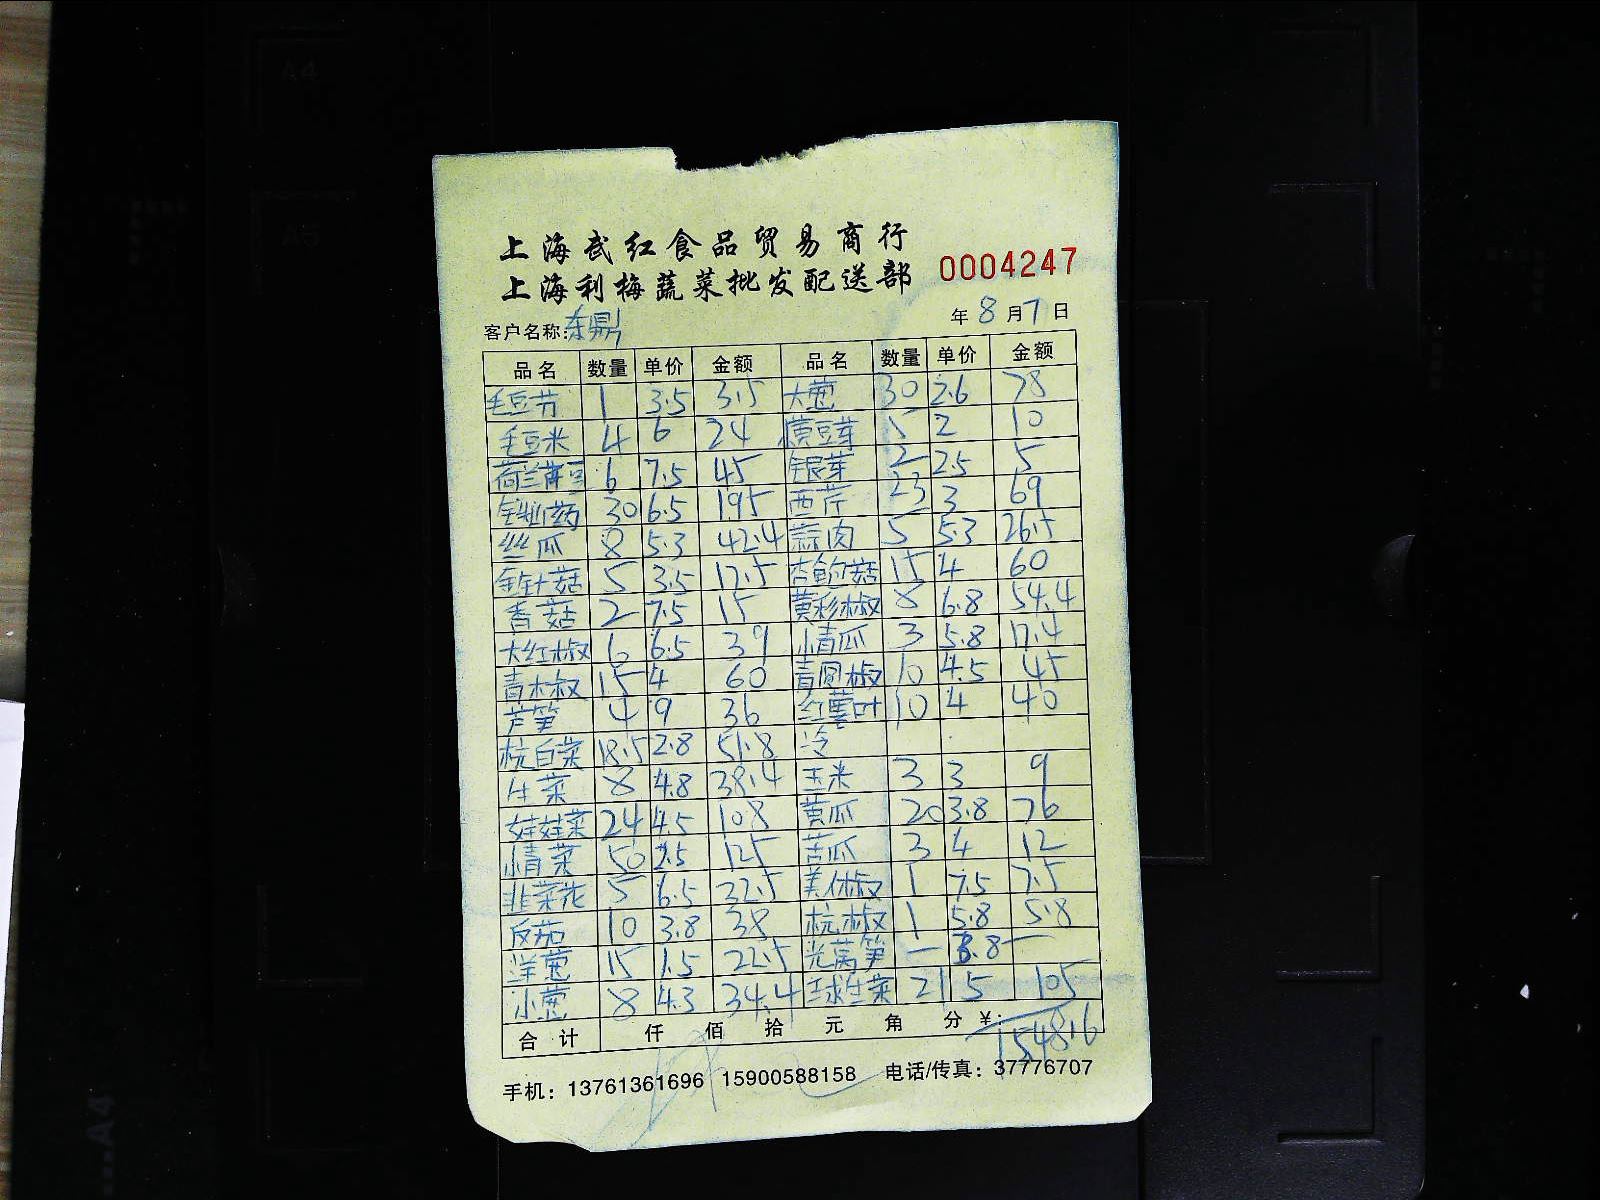 上海武红食品贸易商行
上海利梅蔬菜批发配送部 0004247
客户名称: 东鼎 年 8 月 7 日
品名 数量 单价 金额 品名 数量 单价 金额
毛豆节 1 3.5 3.5 大葱 30 2.6 78
毛豆米 4 6 24 黄豆芽 5 2 10
荷兰荷豆 6 7.5 45 银芽 2 2.5 5
铁山药 30 6.5 195 西芹 23 3 69
丝瓜 8 5.3 42.4 蒜肉 5 5.3 26.5
金针菇 5 3.5 17.5 杏鲍菇 15 4 60
香菇 2 7.5 15 黄彩椒 8 6.8 54.4
大红椒 6 6.5 39 小青瓜 3 5.8 17.4
青木椒 15 4 60 青圆椒 10 4.5 45
芦笋 4 9 36 红薯叶 10 4 40
杭白菜 18.5 2.8 51.8 冷
生菜 8 4.8 38.4 玉米 3 3 9
娃娃菜 24 4.5 108 黄瓜 20 3.8 76
小青菜 50 2.5 125 苦瓜 3 4 12
韭菜花 5 6.5 32.5 美人椒 1 7.5 7.5
反茄 10 3.8 38 杭椒 1 5.8 5.8
洋葱 15 1.5 22.5 光莴笋 — 3.8 —
小葱 8 4.3 34.4 球生菜 21 5 105
合计 仟 佰 拾 元 角 分 ¥: 1548.16
手机: 13761361696 15900588158 电话/传真: 37776707